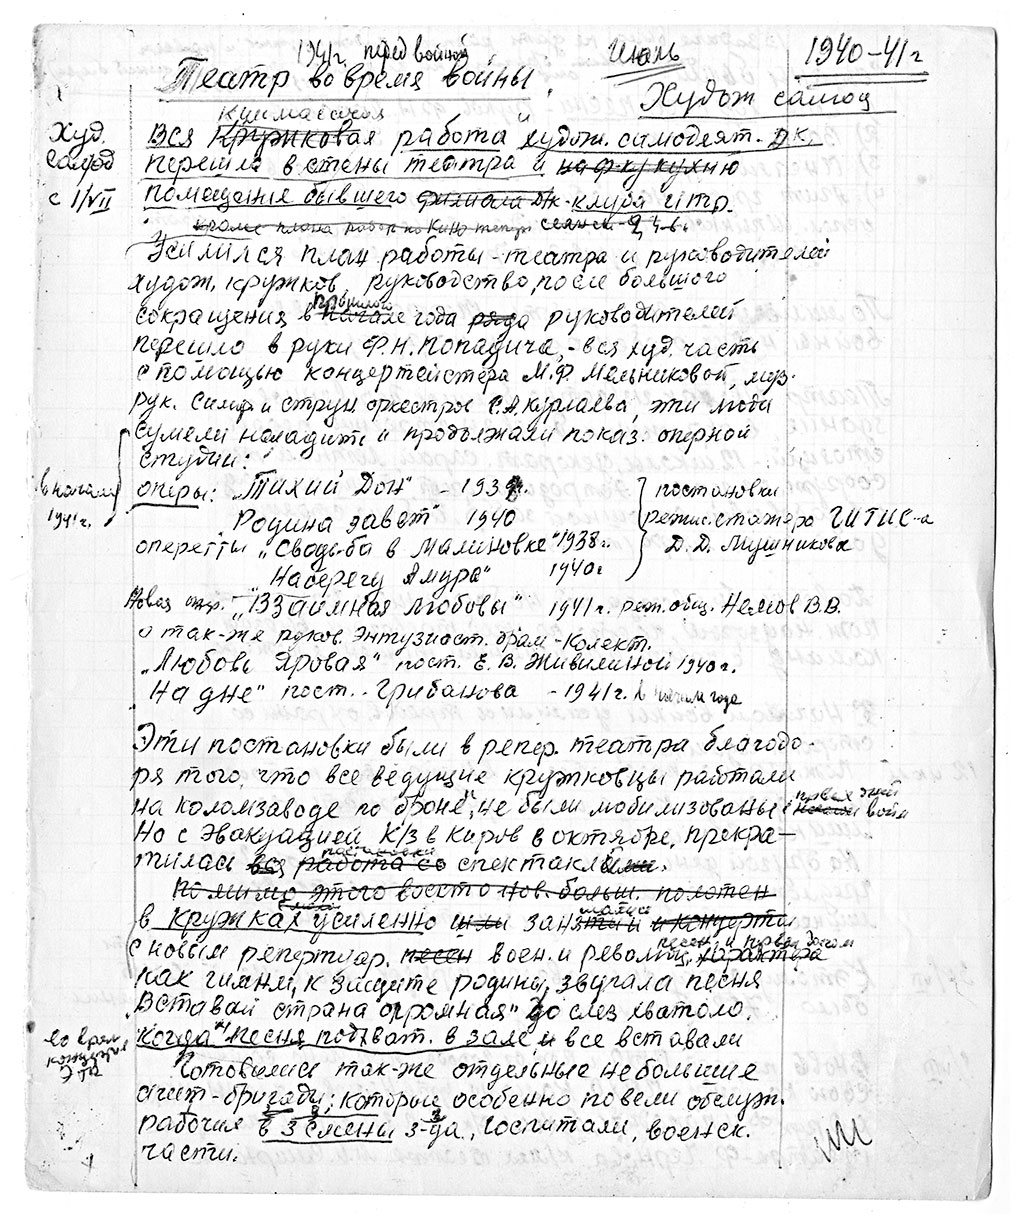 1941г. перед войной Июль 1940-41г
Театр во время войны. Худож самод
Худ. самод с 1/VII
Вся Кружковая работа и худож. самодеят. ДК,
перешла в стены театра и на ф-ку кухню
помещение бывшего филиала ДК-клуба итр.
кроме плана работ по кино театр
Усилился план работы-театра и руководителей
худож. кружков, руководство, после большого
сокращения в прошлого начале года ряда руководителей
перешло в руки Ф.Н. Попадича, - вся худ. часть
с помощью концертмейстера М.Ф. Мельниковой, муз.
рук. Симф и струн. оркестров С.А. Курлаева, эти люди
сумели наладить и продолжали показ. оперной
студии:
в начале 1941г.
оперы: "Тихий Дон" - 1939г. постановки
"Родина зовет" 1940 режис. стажера ГИТИС-а
оперетты "Свадьба в Малиновке" 1938г. Д.Д. Мушникова
На берегу Амура" 1940г
Новая опер. - "Взаимная любовь" 1941г. реж. общ. Немов В.В.
а так-же руков. Энтузиаст. драм-Колект.
"Любовь Яровая" пост. Е.В. Живилиной 1940г.
"На дне" пост. - Грибанова - 1941г. в начале года
Эти постановки были в репер. театра благодо-
ря того, что все ведущие кружковцы работали
на Коломзаводе по "броне", не были мобилизованы с первых дней войны
Но с Эвакуацией К/З в Киров в октябре, прекра-
тилась вся работа со постановки спектаклями.
Помимо этого восстанов. больш. полотен
в кружках усиленно шли занятия и концерты
с новым репертуар. песен воен. и революц. характера песен, и первым долгом
как гимн, к защите родины, звучала песня
"Вставай страна огромная" до слез хватало,
когда песня подхват. в зале, и все вставали
во врем. концертов эта
Готовились так-же отдельные небольшие
агит-бригады; которые особенно повели обслуж.
рабочих в 3 смены з-да, госпитали, воинск.
части.